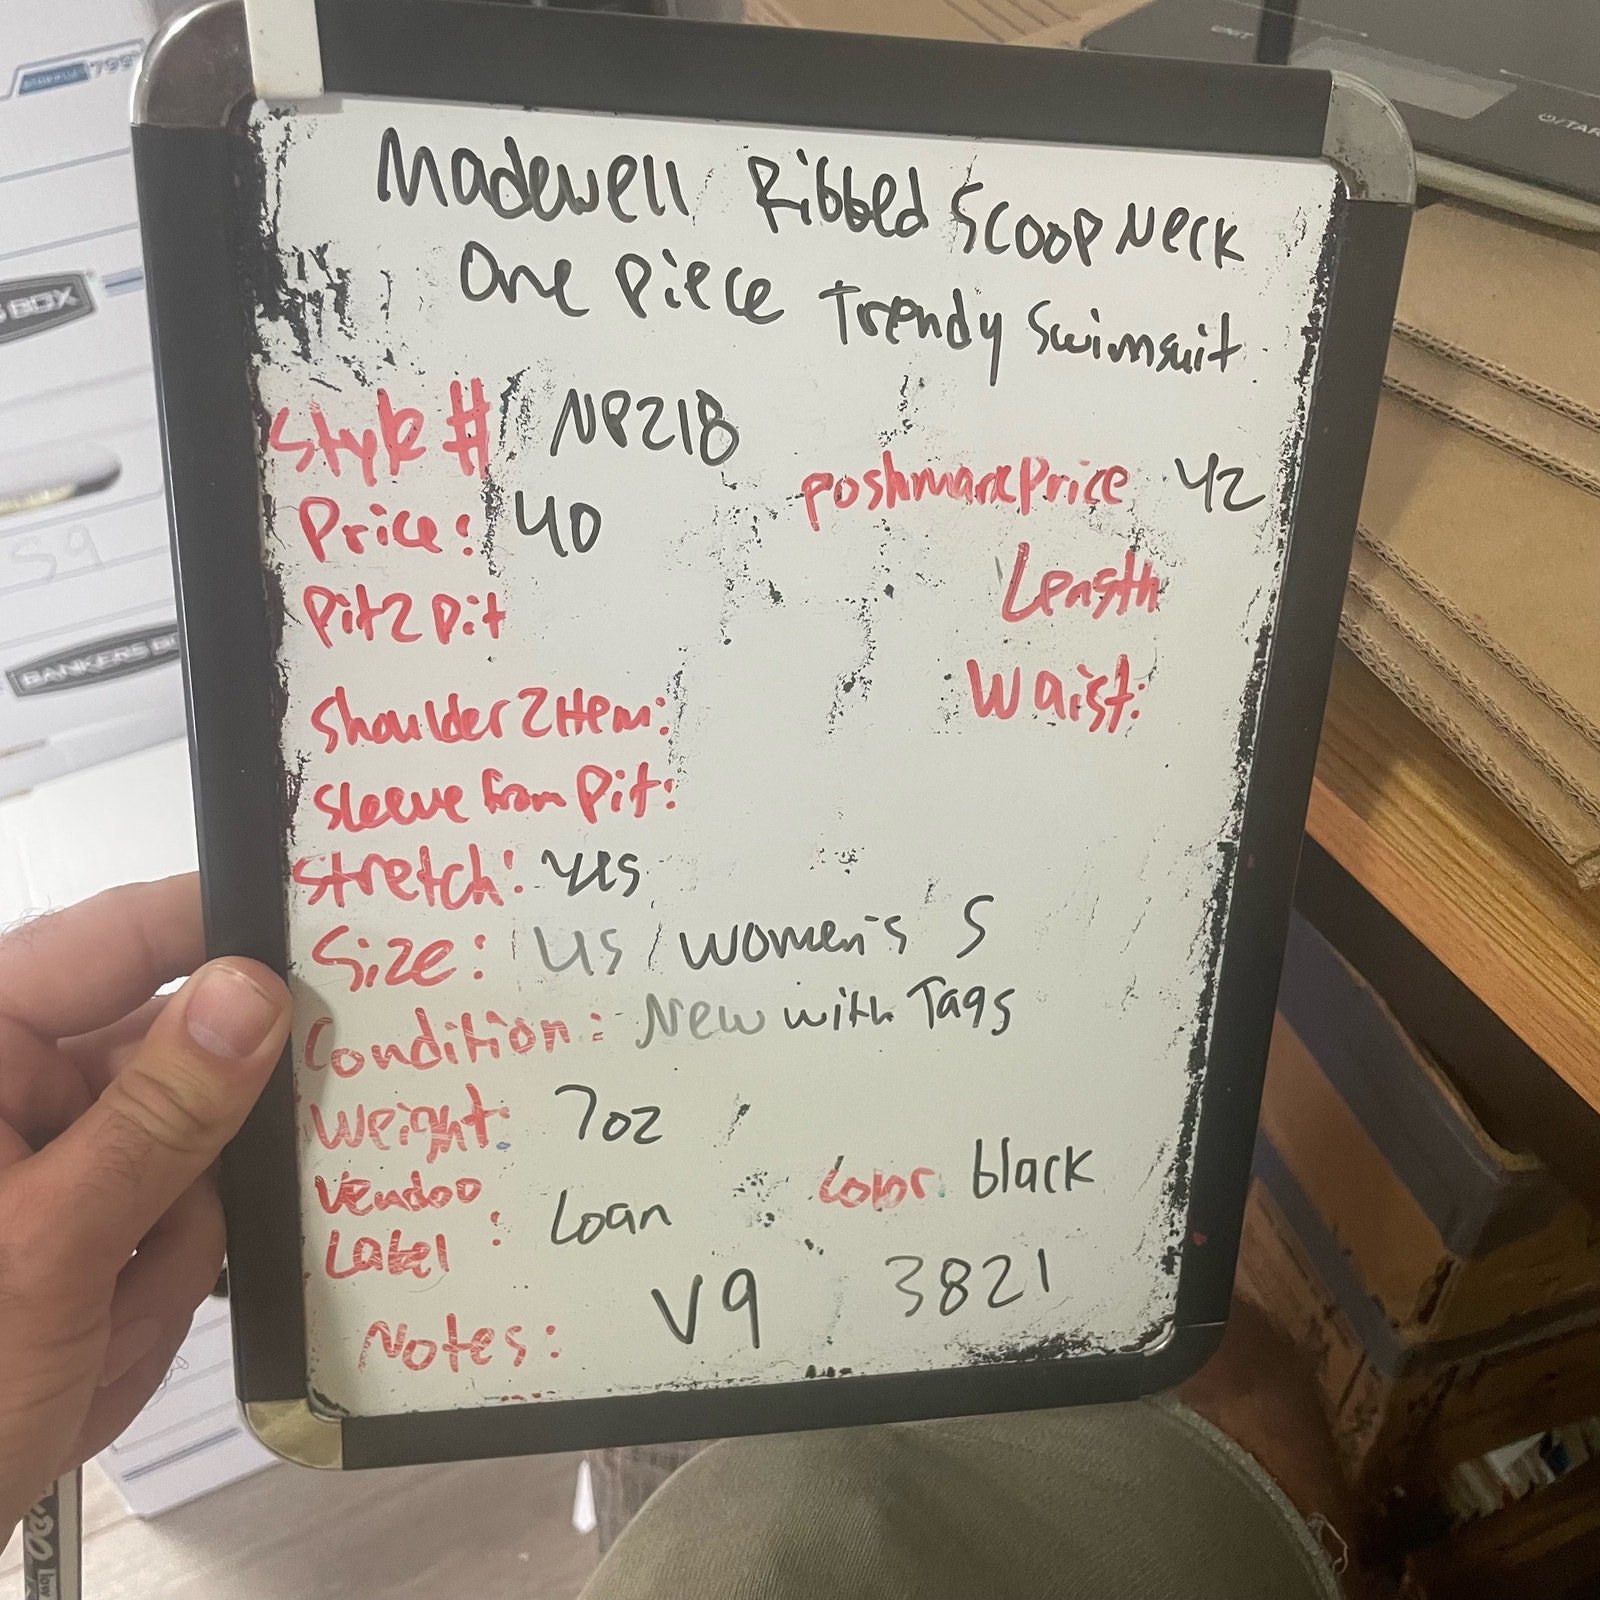 Madewell Ribbed Scoop Neck
One Piece Trendy Swimsuit
Style # NP218
Poshmark Price 42
Price: 40
Length
Pit 2 Pit
Waist:
Shoulder 2 Hem:
Sleeve from Pit:
Stretch: yes
Size: US / women's S
Condition: New with Tags
Weight: 7oz
Vendoo
Label: Loan
Color: black
V9 3821
Notes:
799
S BOX
59
BANKERS BO
UNIT
low